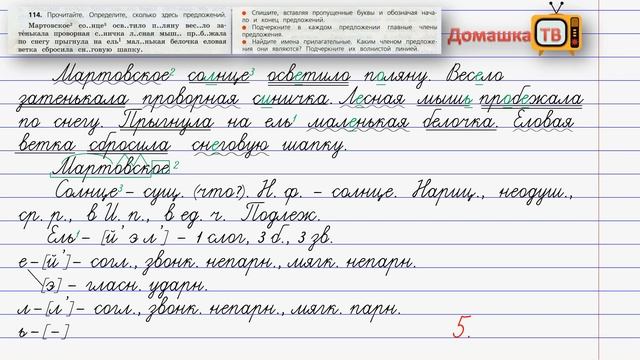 114. Прочитайте. Определите, сколько здесь предложений.
Мартовское² со..нце³ осв..тило п..ляну вес..ло за-
тенькала проворная с..ничка л..сная мыш.. пр..б..жала
по снегу прыгнула на ель¹ мал..нькая белочка еловая
ветка сбросила сн..говую шапку.
● Спишите, вставляя пропущенные буквы и обозначая нача-
ло и конец предложений.
● Подчеркните в каждом предложении главные члены
предложения.
● Найдите имена прилагательные. Каким членом предложе-
ния они являются? Подчеркните их волнистой линией.
Домашка ТВ
Мартовское² солнце³ осветило поляну. Весело
затенькала проворная синичка. Лесная мышь пробежала
по снегу. Прыгнула на ель¹ маленькая белочка. Еловая
ветка сбросила снеговую шапку.
Мартовское²
Солнце³ – сущ. (что?). Н. ф. – солнце. Нариц., неодуш.,
ср. р., в И. п., в ед. ч. Подлеж.
Ель¹ – [й' э л'] – 1 слог, 3 б., 3 зв.
е – [й'] – согл., звонк. непарн., мягк. непарн.
[э] – гласн. ударн.
л – [л'] – согл., звонк. непарн., мягк. парн.
ь – [–]
5.